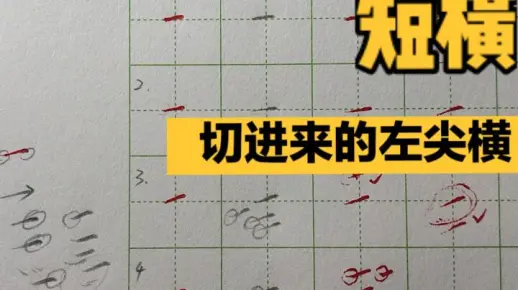 短橫
2.
切进来的左尖横
3.
4